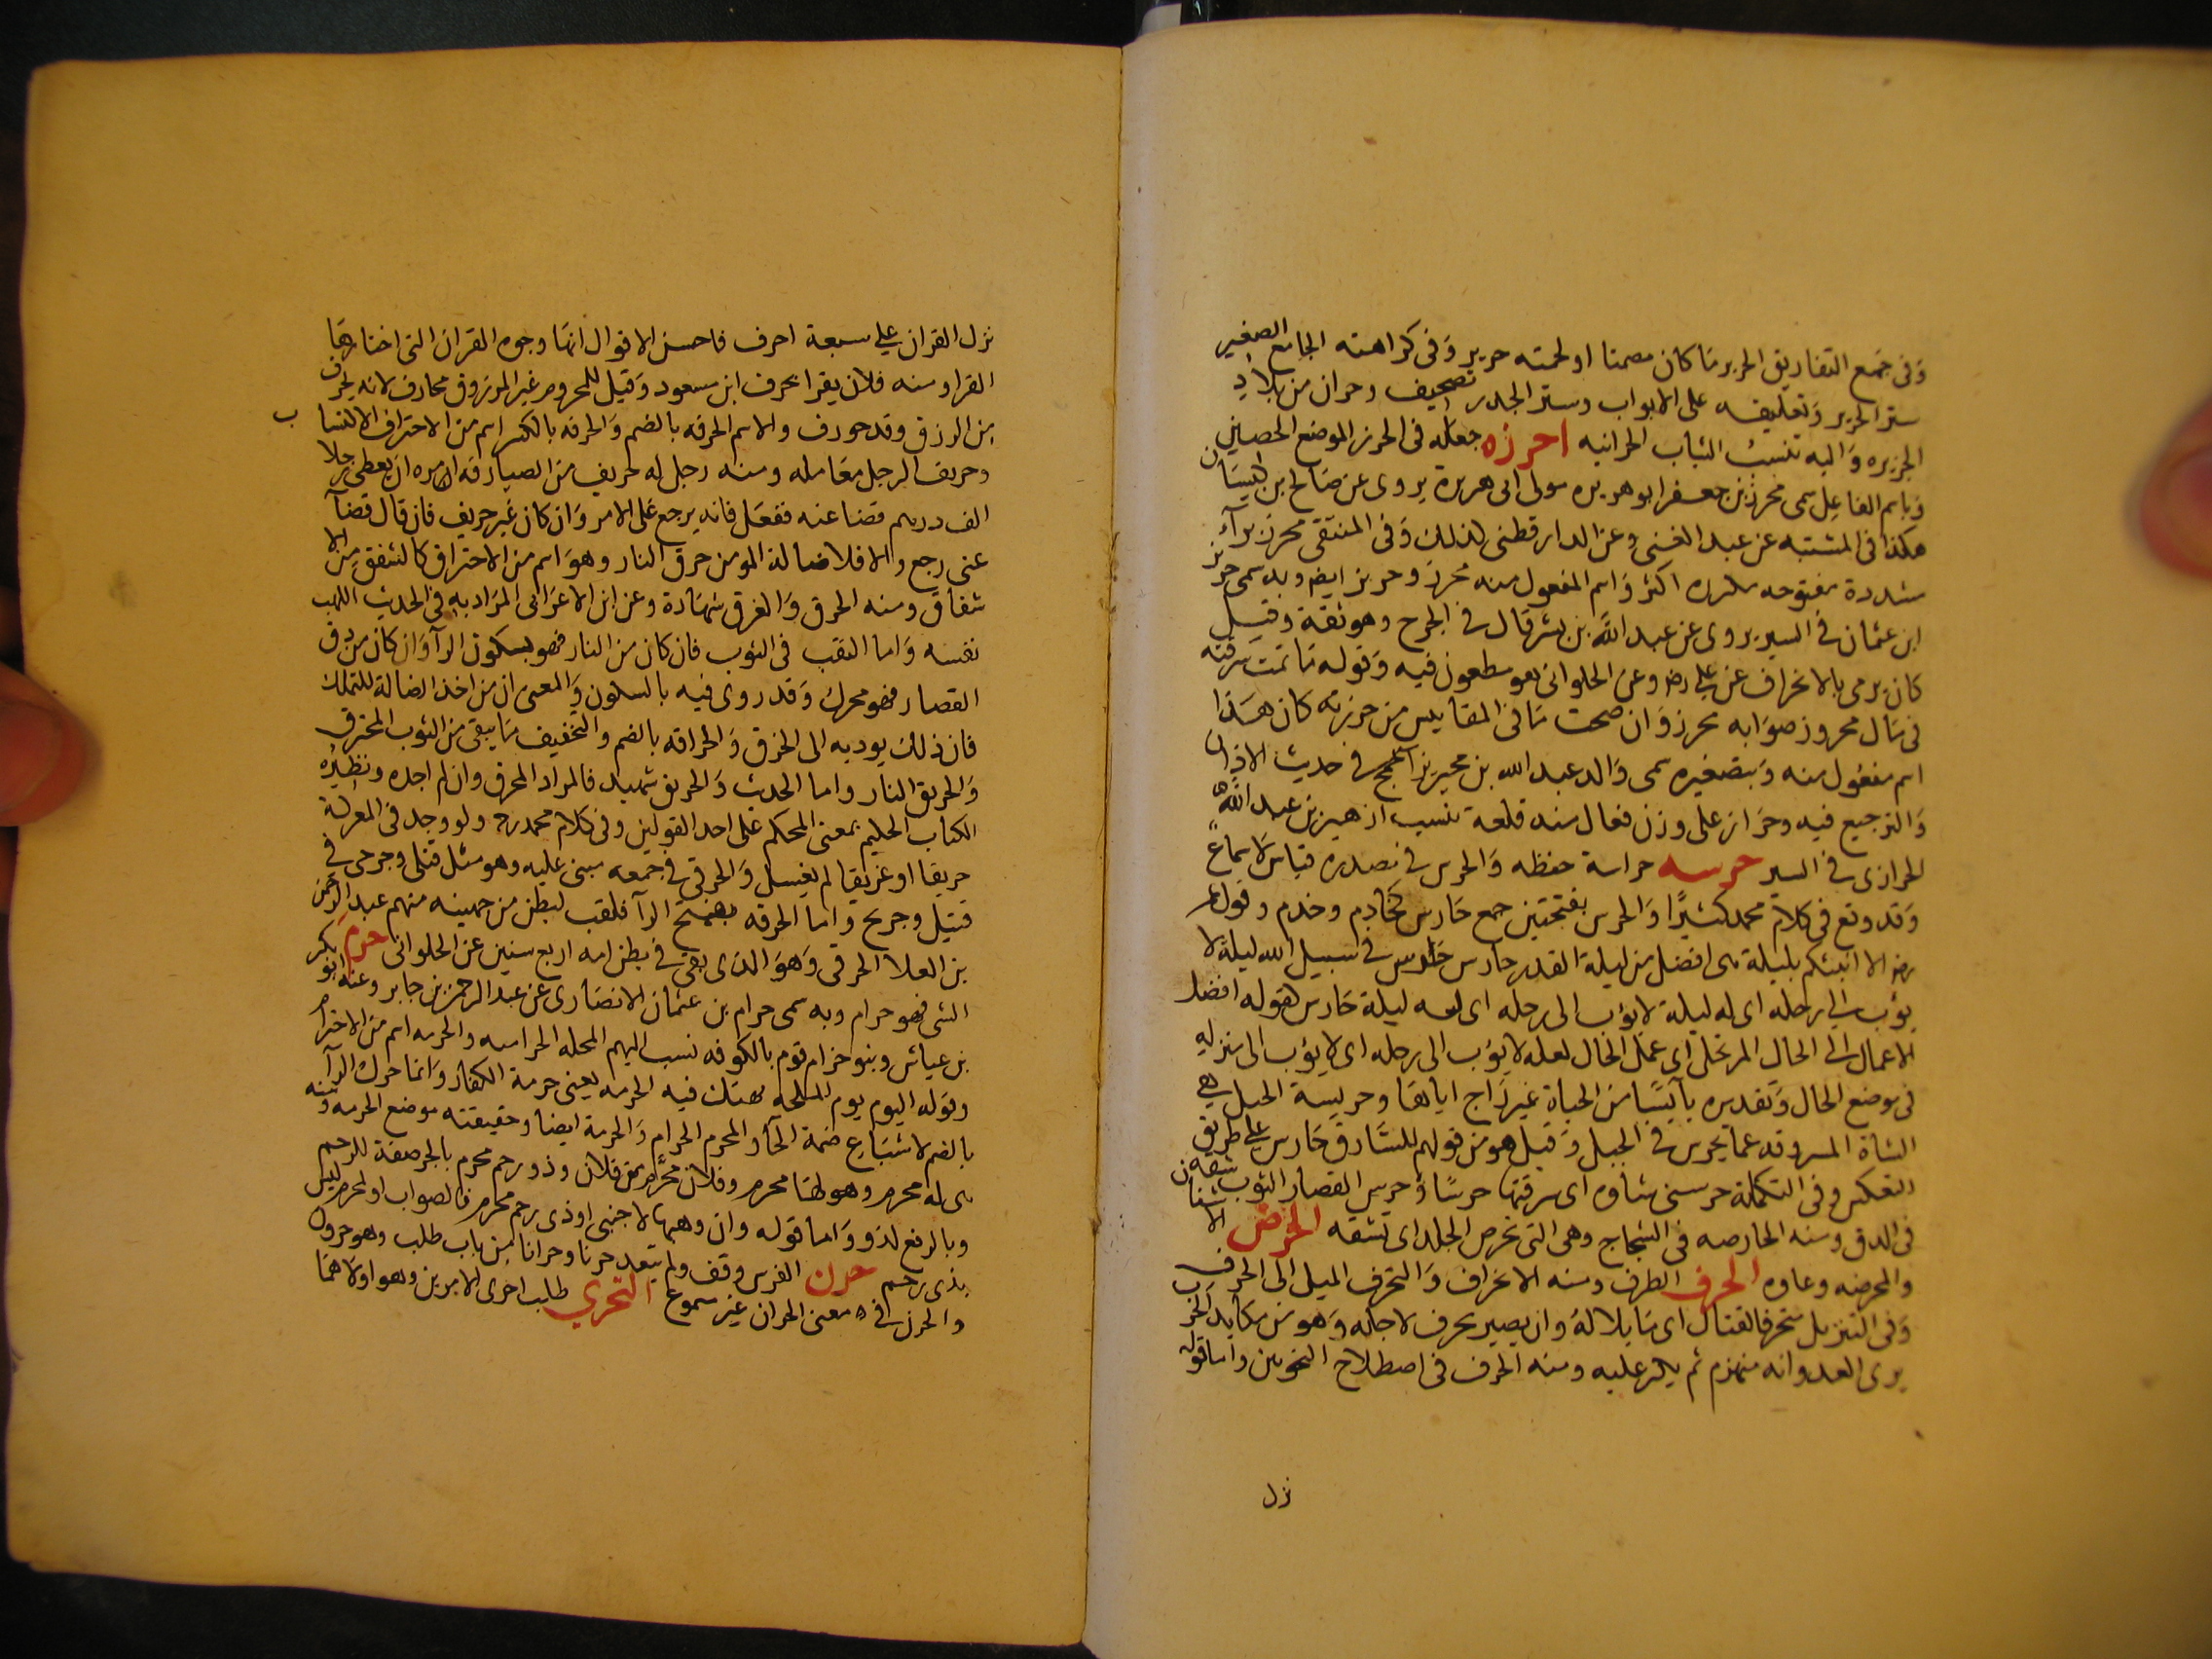 وفى جمع التفاريق الحرير ما كان مصمتا او لحمته حرير وفى كراهته الجامع الصغير
ستر الحرير وتعليقه على الابواب وستر الجدر تصحيف وحران من بلاد
الجزيره واليه تنسب الثياب الحرانيه احرزه جعله فى الحرز الموضع الحصين
وباسم الفاعل سمى محرز بن جعفر ابو هريره مولى ابى هريرة يروى عن صالح بن كيسان
هكذا فى المشتبه عن عبد الغنى وعن الدار قطنى كذلك وفى المنتقى محرز برآء
مشددة مفتوحه مكرره اكثر واسم المفعول منه محرز وحريز ايضا وبه سمى حريز
ابن عثمان فى السير يروى عن عبد الله بن بشر قال فى الجرح وهو ثقة وقيل
كان يرمى بالانحراف عن على رضه وعن الحلوانى هو مطعون فيه وقوله ما تمت سرقته
فى مال محروز صوابه محرز وان صحت ما فى المقاييس من حرزته كان هذا
اسم مفعول منه وبتصغيره سمى والد عبد الله بن محيريز الجمحى فى حديث الاذان
والترجيع فيه وحراز على وزن فعال منه قلعة تنسب ازهر بن عبد الله
الحرازى فى السير حرسه حراسة حفظه والحرس فى مصدره قياس لا سماع
وقد وقع فى كلام محمد كثيرًا والحرس بفتحتين جمع حارس كخادم وخدم وقول عمر
رضه الا انبئكم بليلة هى افضل من ليلة القدر حارس حارس فى سبيل الله ليلة لا
يؤب الى رحله اى له ليلة لا يؤب الى رحله اى ليلة حارس لقوله افضل
الاعمال الى الحال المرتحل اى عمل الحال لعله لا يؤب الى رحله اى لا يؤب الى منزله
فى موضع الحال وتقديره بآئسًا من الحياة غير راج ايابها وحريسة الجبل هى
الشاة المسروقه عما يحرس فى الجبل وقيل هو من قولهم للسارق حارس على طريق
التعكس وفى التكملة حرسنى شاوه اى سرقتها حرسًا وحرس القصار الثوب شقه
فى الدق ومنه الحارصه فى الشجاج وهى التى تحرص الجلد اى تشقه الحرض الاشنان
والمحرضه وعاوه الحرف الطرف ومنه الانحراف والتحرف الميل الى الحرف
وفى التنزيل متحرفا لقتال اى مايلا له وان يصير بحرف لاجله وهو من مكايد الحرب
يرى العدو انه منهزم ثم يكر عليه ومنه الحرف فى اصطلاح النحوين واما قوله
نزل
نزل القران على سبعة احرف فاحسن الاقوال انها وجوه القران التى اختارها
القرا ومنه فلان يقرا بحرف ابن مسعود وقيل للمحروم غير المرزوق محارف لانه يحرف
من الرزق وقد حورف والاسم الحرفه بالضم والحرفه بالكسر اسم من الاحتراف الاكتساب
وحريف الرجل معامله ومنه رجل له حريف من الصيارفه امره ان يعطى رجلا
الف درهم قضا عنه ففعل فانه يرجع على الامر وان كان غير حريف فان قال قضآ
عنى رجع والا فلا ضالة المومن حرق النار وهو اسم من الاحتراق كالشفق من الا
شفاق ومنه الحرق والغرق شهادة وعن ابن الاعرابى المراد به فى الحديث اللهب
نفسه واما الثقب فى الثوب فان كان من النار فهو بسكون الرآ وان كان من دق
القصار فهو محرك وقد روى فيه بالسكون والمعنى ان من اخذ الضالة للتملك
فان ذلك يوديه الى الحرق والحراقه بالضم والتخفيف ما يبقى من الثوب المحترق
والحريق النار واما الحديث والحريق شهيد فالمراد المحرق وان لم اجده ونظيره
الكتاب الحكيم بمعنى المحكم على احد القولين وفى كلام محمد رح ولو وجد فى المعركة
حريقا او غريقا لم يغسل والحرقى فى جمعه مبنى عليه وهو مثل قتلى وجرحى فى
قتيل وجريح واما الحرقه بفتح الرآ فلقب لبطن من جهينه منهم عبد الرحمن
بن العلا الحرقى وهو الذى بقى فى بطن امه اربع سنين عن الحلوانى حرم
الشى فهو حرام وبه سمى حرام بن عثمان الانصارى عن عبد الرحمن بن جابر وعنه ابو بكر
بن عياش وبنو حرام قوم بالكوفه نسب اليهم المحله الحراميه والحرمه اسم من الاحترام
وقوله اليوم يوم الملحمه تهتك فيه الحرمه يعنى حرمة الكفار وانما حرك الرآ
بالضم لاشباع ضمة الحآ والمحرم الحرام والحرمة ايضا وحقيقته موضع الحرمه ومنه
هى له محرم وهو لها محرم وفلان محرم من فلان وذو رحم محرم بالجر صفة للرحم
وبالرفع لذو واما قوله وان وهبها لاجنبى او ذى رحم محرم فالصواب او لمحرم ليس
بذى رحم حرن الفرس وقف ولم يتعد حرنا وحرانا من باب طلب وهو حرون
والحرن فى معنى الحران غير مسموع التحري طلب احرى الامرين وهو اولاهما